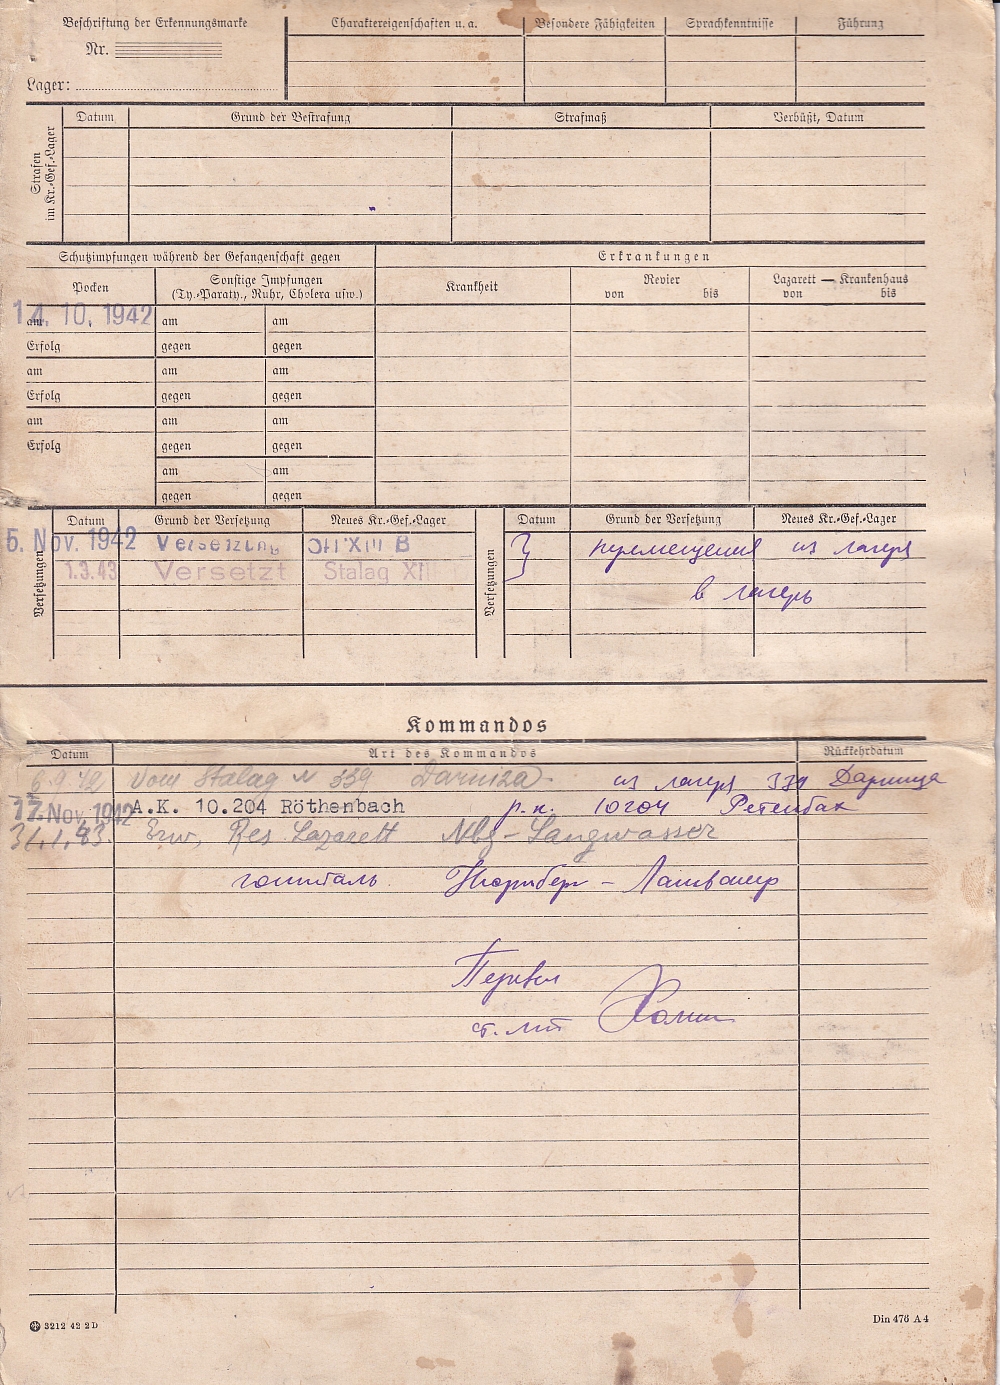 Beschriftung der Erkennungsmarke
Nr.
Lager:
Charaktereigenschaften u. a.
Besondere Fähigkeiten
Sprachkenntnisse
Führung
Strafen im Kr.-Gef.-Lager
Datum
Grund der Bestrafung
Strafmaß
Verbüßt, Datum
Schutzimpfungen während der Gefangenschaft gegen
Erkrankungen
Pocken
Sonstige Impfungen
(Ty.-Paraty., Ruhr, Cholera usw.)
Krankheit
Revier
von bis
Lazarett — Krankenhaus
von bis
14. 10. 1942
am am am
Erfolg gegen gegen
am am am
Erfolg gegen gegen
am am am
Erfolg gegen gegen
am am
gegen gegen
Versetzungen
Datum Grund der Versetzung Neues Kr.-Gef.-Lager
5. Nov. 1942 Versetzung XIII B
1.3.43 Versetzt Stalag
Versetzungen
Datum Grund der Versetzung Neues Kr.-Gef.-Lager
перемещения из лагеря
в лагерь
Kommandos
Datum Art des Kommandos Rückkehrdatum
6.9.42 vom Stalag N 339 Darniza из лагеря 339 Дарница
17. Nov. 1942 A.K. 10.204 Röthenbach р.к. 10204 Ретенбах
31.1.43. Res. Lazarett Nbg-Langwasser
госпиталь Нюрнберг - Лангвасер
Перевел
ст. л-т
3212 42 2D
Din 476 A4